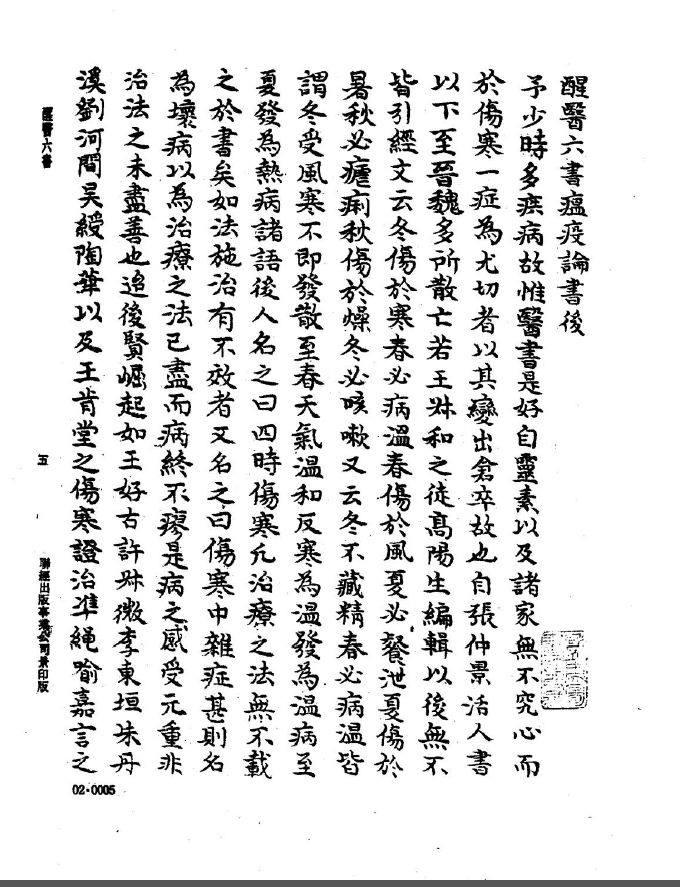 醒醫六書瘟疫論書後
予少時多疾病故惟醫書是好自靈素以及諸家無不究心而
於傷寒一症為尤切者以其變出倉卒故也自張仲景活人書
以下至晉魏多所散亡若王叔和之徒高陽生編輯以後無不
皆引經文云冬傷於寒春必病溫春傷於風夏必飱泄夏傷於
暑秋必瘧痢秋傷於燥冬必咳嗽又云冬不藏精春必病溫皆
謂冬受風寒不即發散至春天氣溫和反寒為溫發為溫病至
夏發為熱病諸語後人名之曰四時傷寒凡治療之法無不載
之於書矣如法施治有不效者又名之曰傷寒中雜症甚則名
為壞病以為治療之法已盡而病終不瘳是病之感受元重非
治法之未盡善也迨後賢崛起如王好古許叔微李東垣朱丹
溪劉河間吴綬陶華以及王肯堂之傷寒證治準繩喻嘉言之
醒醫六書
五
聯經出版事業公司景印版
02-0005